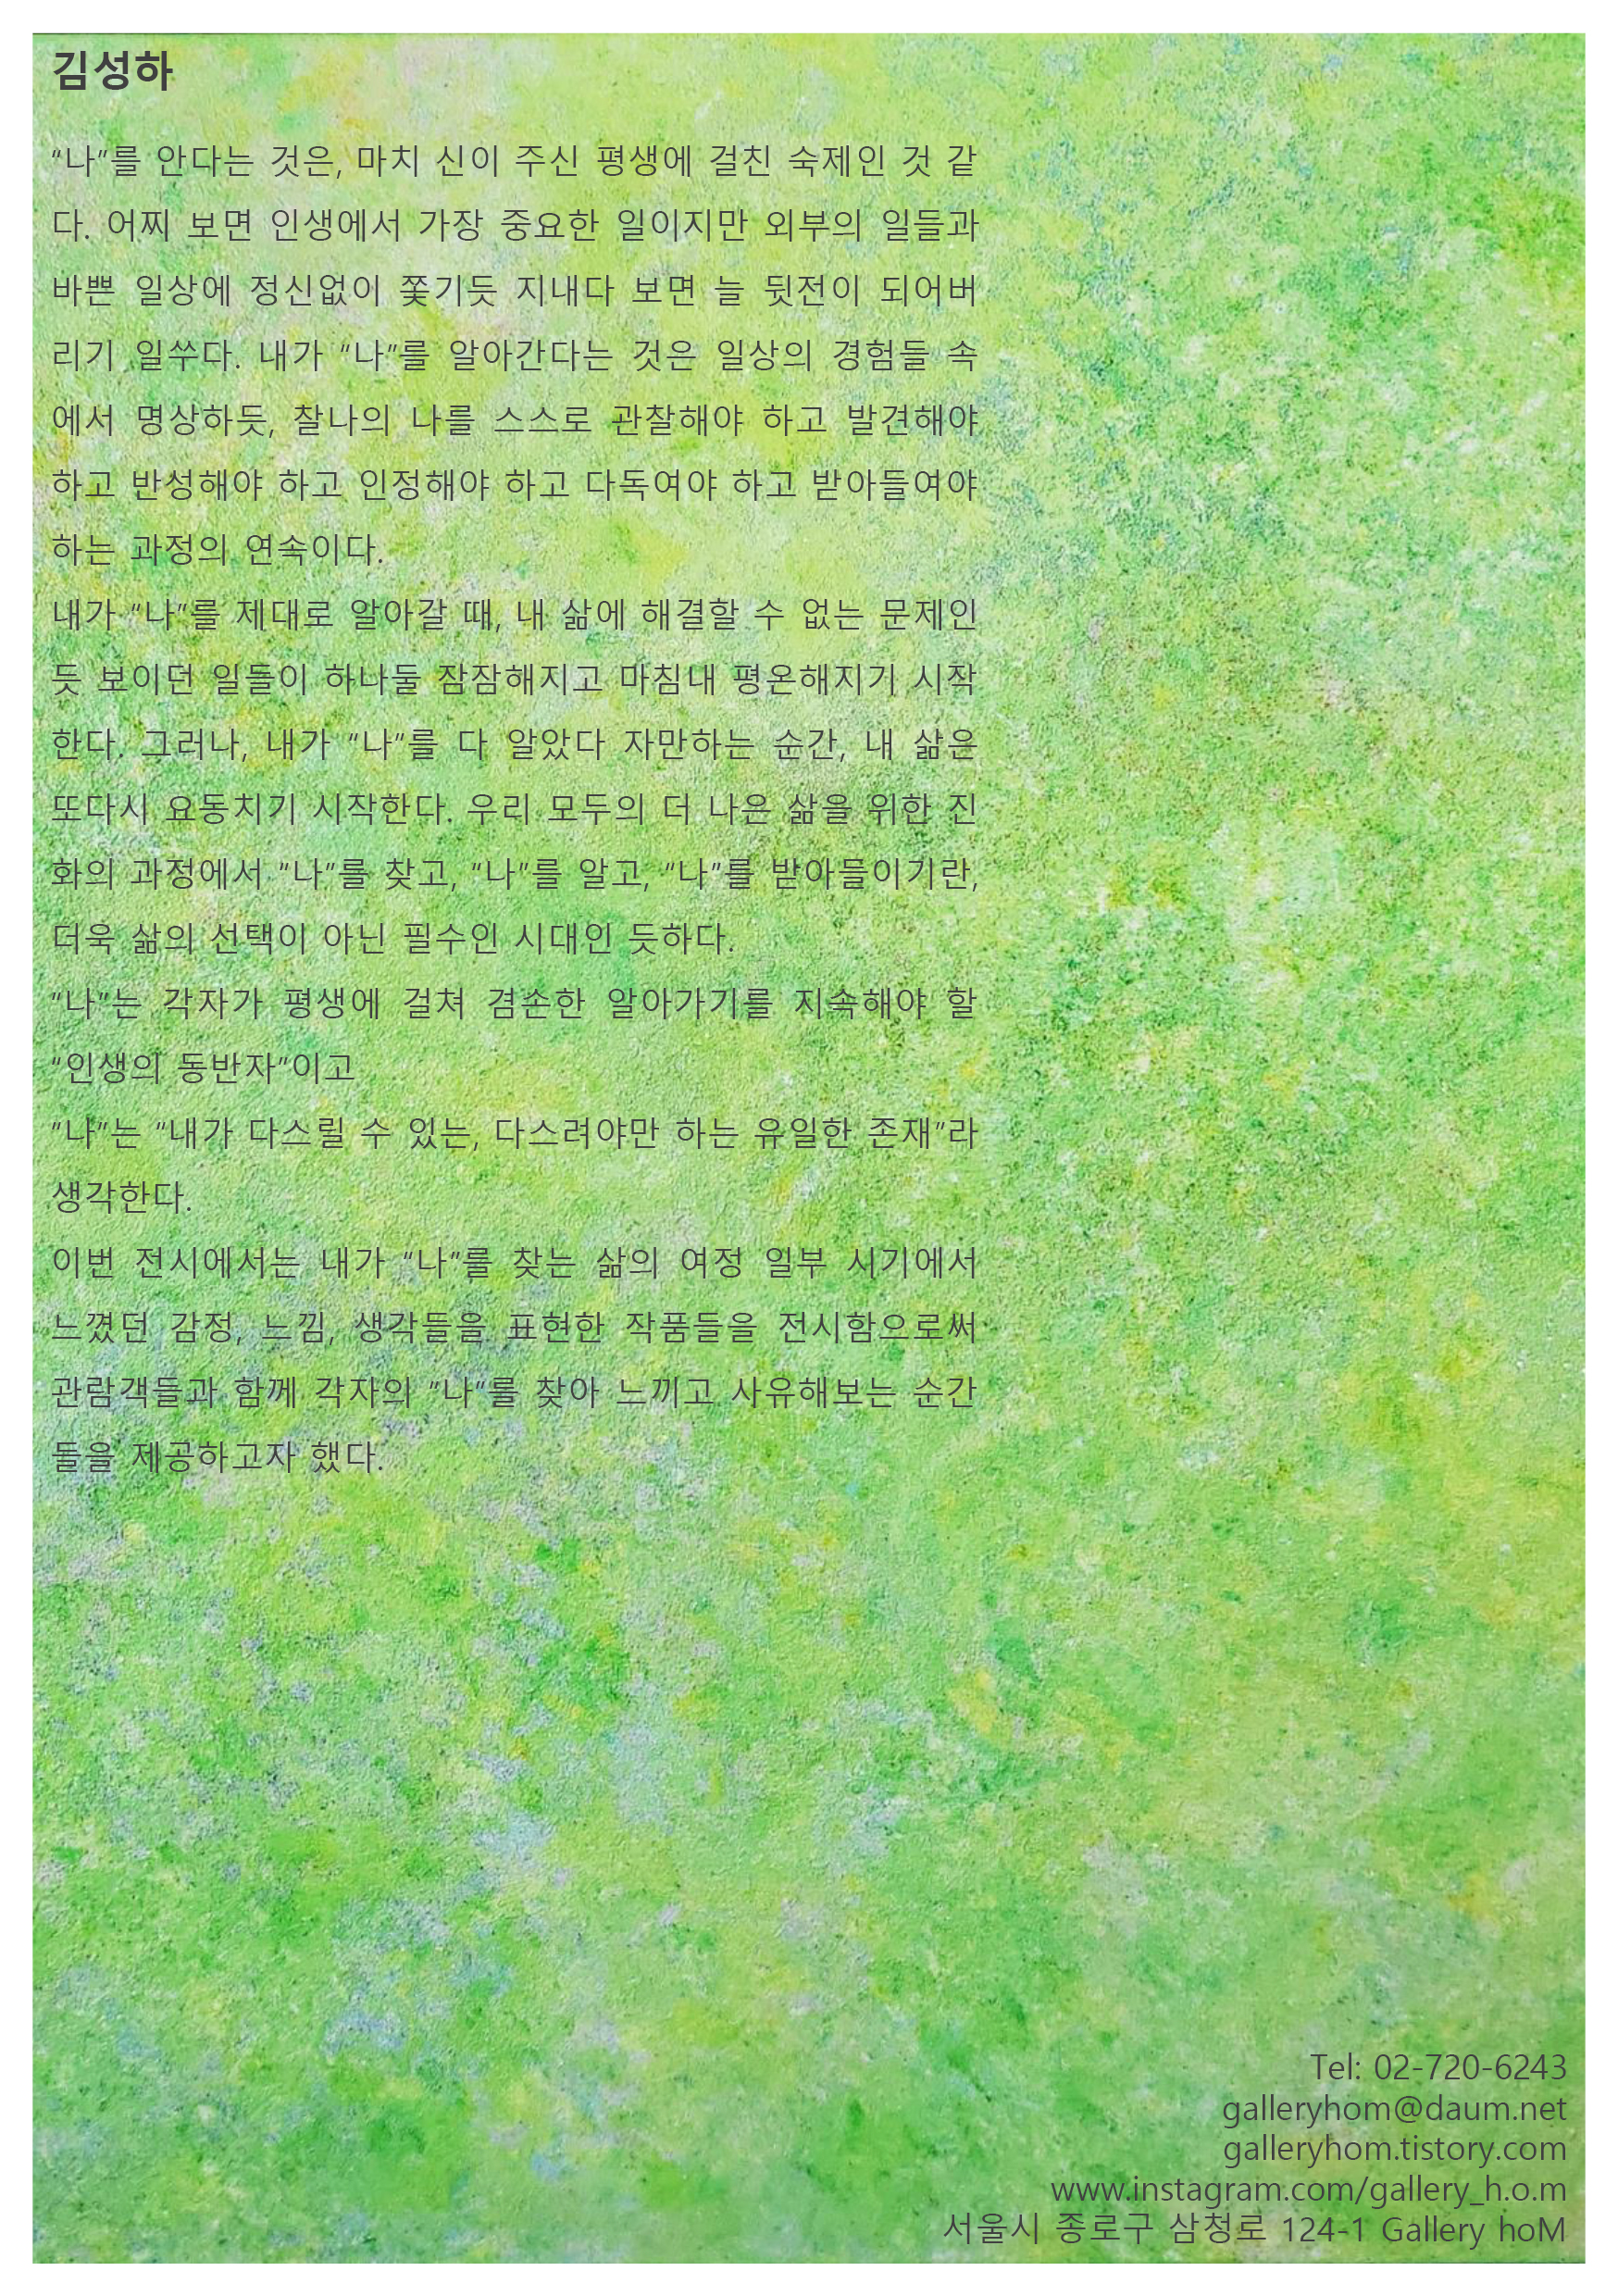 김성하
“나”를 안다는 것은, 마치 신이 주신 평생에 걸친 숙제인 것 같
다. 어찌 보면 인생에서 가장 중요한 일이지만 외부의 일들과
바쁜 일상에 정신없이 쫓기듯 지내다 보면 늘 뒷전이 되어버
리기 일쑤다. 내가 “나”를 알아간다는 것은 일상의 경험들 속
에서 명상하듯, 찰나의 나를 스스로 관찰해야 하고 발견해야
하고 반성해야 하고 인정해야 하고 다독여야 하고 받아들여야
하는 과정의 연속이다.
내가 “나”를 제대로 알아갈 때, 내 삶에 해결할 수 없는 문제인
듯 보이던 일들이 하나둘 잠잠해지고 마침내 평온해지기 시작
한다. 그러나, 내가 “나”를 다 알았다 자만하는 순간, 내 삶은
또다시 요동치기 시작한다. 우리 모두의 더 나은 삶을 위한 진
화의 과정에서 “나”를 찾고, “나”를 알고, “나”를 받아들이기란,
더욱 삶의 선택이 아닌 필수인 시대인 듯하다.
“나”는 각자가 평생에 걸쳐 겸손한 알아가기를 지속해야 할
“인생의 동반자”이고
”나”는 “내가 다스릴 수 있는, 다스려야만 하는 유일한 존재”라
생각한다.
이번 전시에서는 내가 “나”를 찾는 삶의 여정 일부 시기에서
느꼈던 감정, 느낌, 생각들을 표현한 작품들을 전시함으로써
관람객들과 함께 각자의 ”나“를 찾아 느끼고 사유해보는 순간
들을 제공하고자 했다.
Tel: 02-720-6243
galleryhom@daum.net
galleryhom.tistory.com
www.instagram.com/gallery_h.o.m
서울시 종로구 삼청로 124-1 Gallery hoM